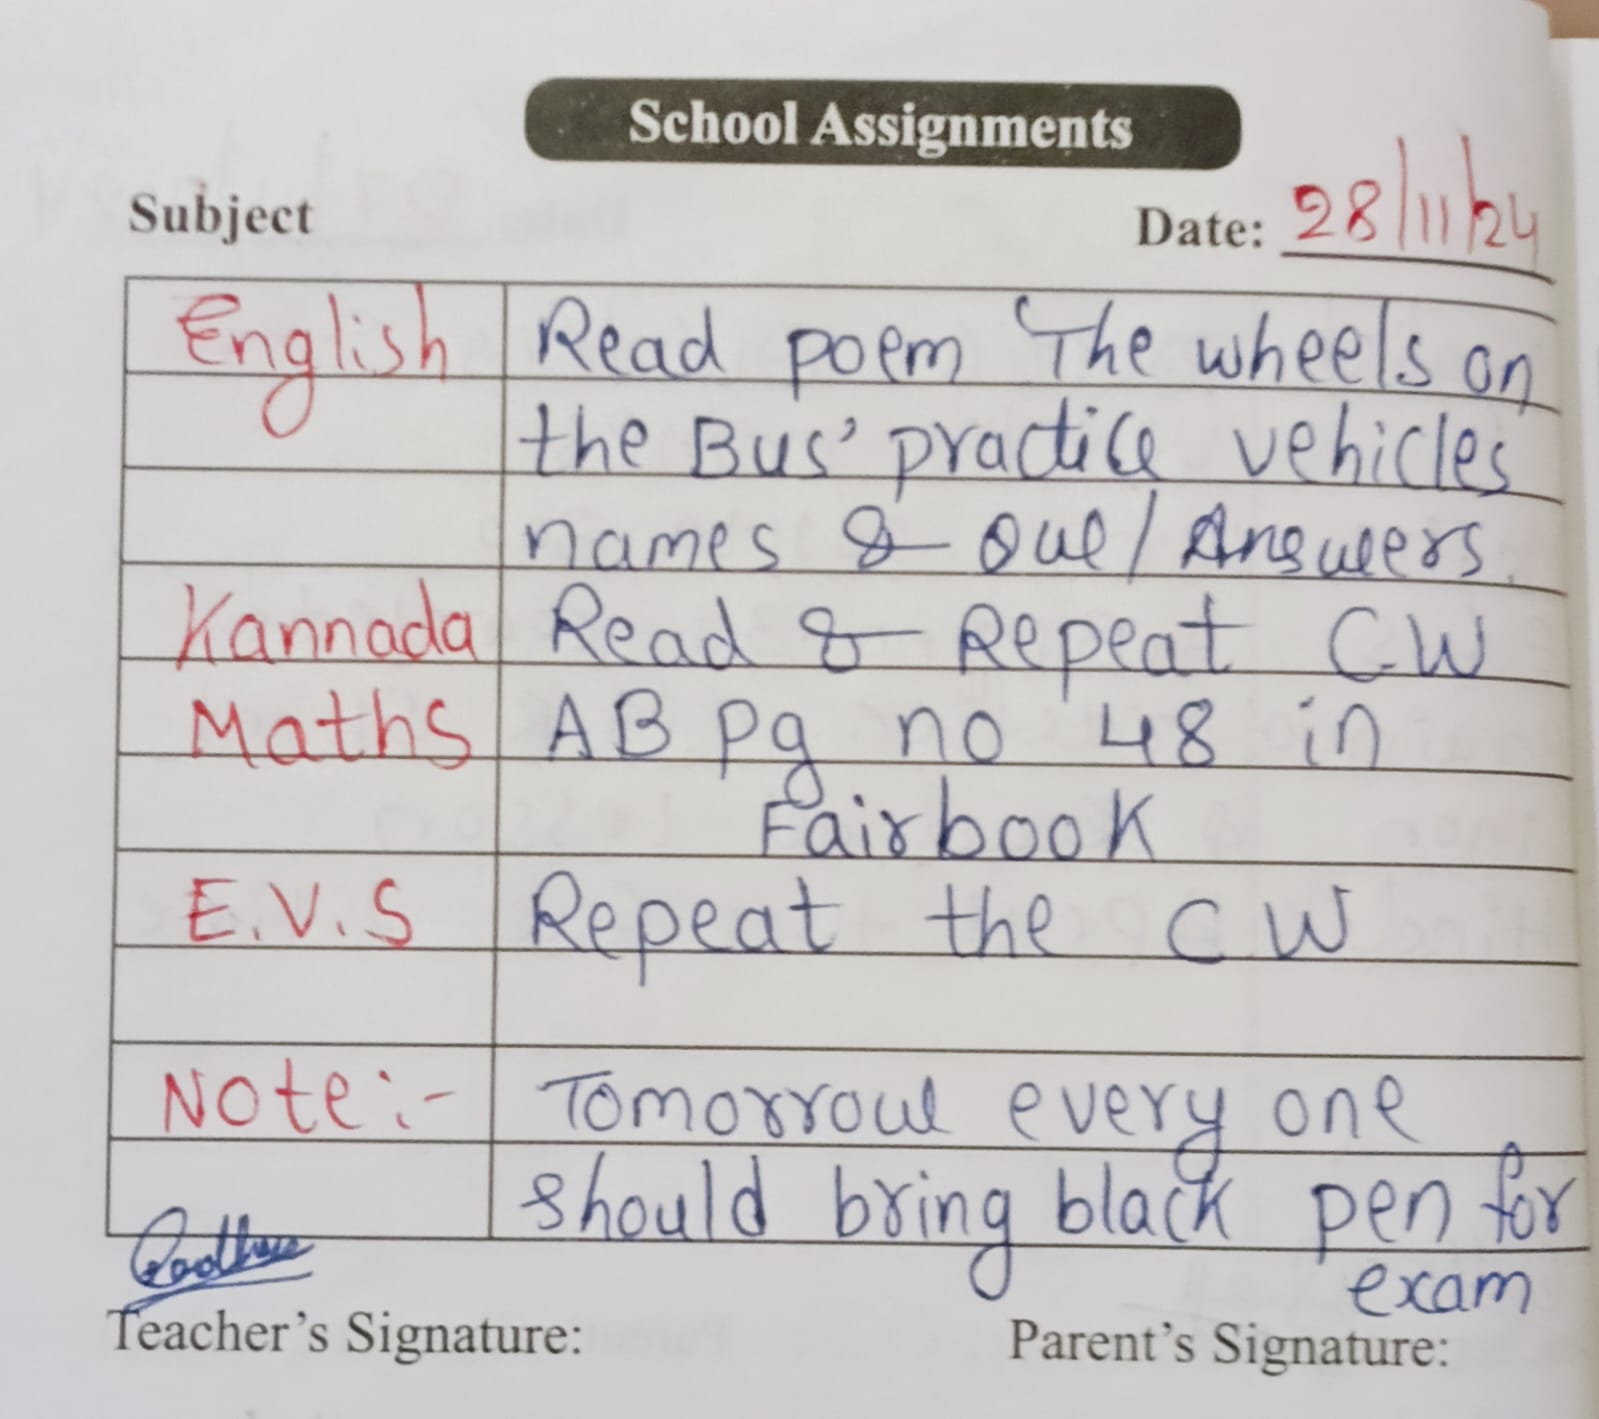 School Assignments
Subject
Date: 28/11/24
English Read poem 'The wheels on
the Bus' practice vehicles
names & Que/Answers.
Kannada Read & Repeat CW
Maths AB pg no 48 in
Fairbook
E.V.S Repeat the CW
Note:- Tomorrow every one
should bring black pen for
exam
Teacher's Signature:
Parent's Signature: